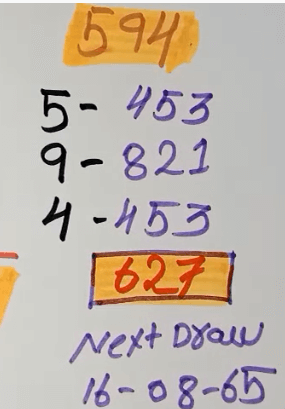 594
5- 453
9- 821
4-453
627
Next Draw
16-08-65